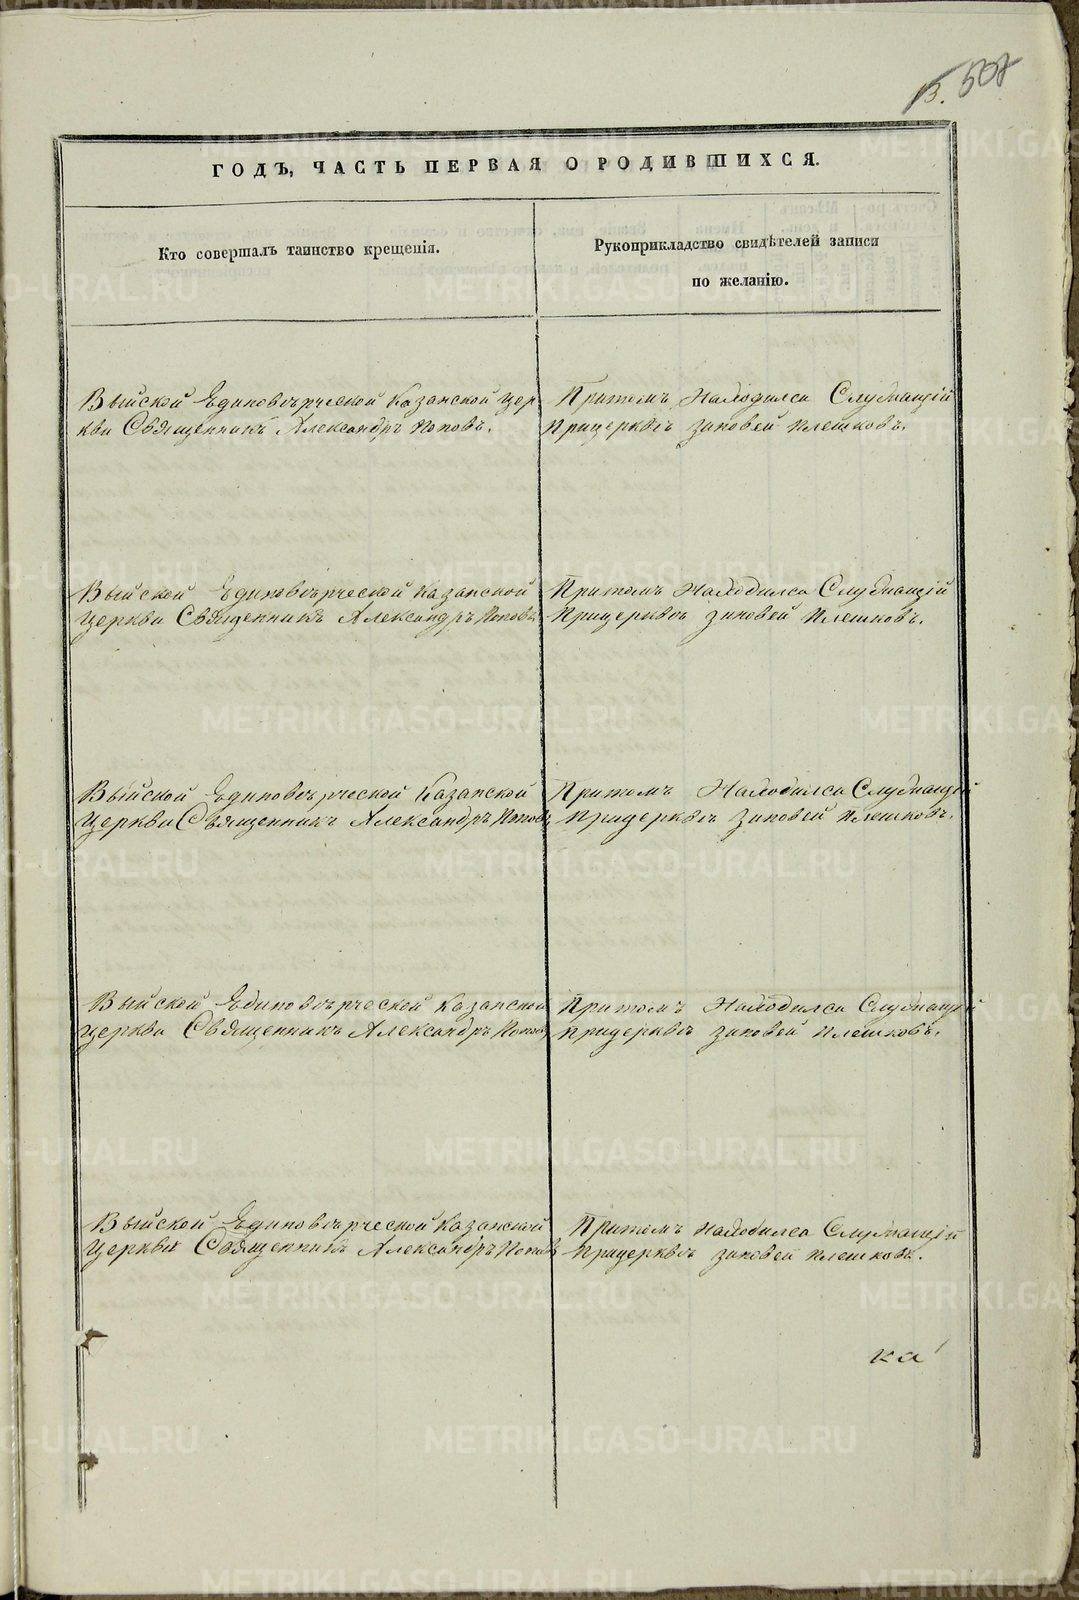 13. 507
ГОДЪ, ЧАСТЬ ПЕРВАЯ О РОДИВШИХСЯ.
Кто совершалъ таинство крещенія.
Рукоприкладство свидѣтелей записи
по желанію.
Выйской Единовѣрческой Казанской цер
кви Священникъ Александръ Поповъ.
Притомъ Находился Служащій
Прицерквѣ Зиновей Плешковъ.
Выйской Единовѣрческой Казанской
Церкви Священникъ Александръ Поповъ
Притомъ Находился Служащій
Прицерквѣ Зиновей Плешковъ.
Выйской Единовѣрческой Казанской
Церкви Священникъ Александръ Поповъ
Притомъ Находился Служащій
Прицерквѣ Зиновей Плешковъ.
Выйской Единовѣрческой Казанской
Церкви Священникъ Александръ Поповъ
Притомъ Находился Служащій
Прицерквѣ Зиновей Плешковъ.
Выйской Единовѣрческой Казанской
Церкви Священникъ Александръ Поповъ
Притомъ Находился Служащій
Прицерквѣ Зиновей Плешковъ.
ка
METRIKI.GASO-URAL.RU